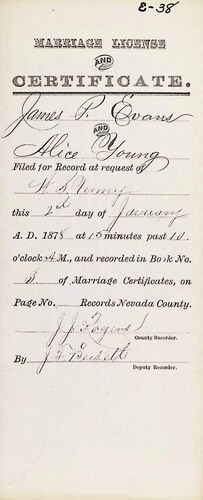 E-38
MARRIAGE LICENSE
AND
CERTIFICATE.
James P. Evans
AND
Alice Young
Filed for Record at request of
this 2d day of January
A. D. 1878 at 15 minutes past 10
o'clock A M., and recorded in Book No.
3. of Marriage Certificates, on
Page No. Records Nevada County.
J. J. Rogers
County Recorder.
By J. T. Beckett
Deputy Recorder.